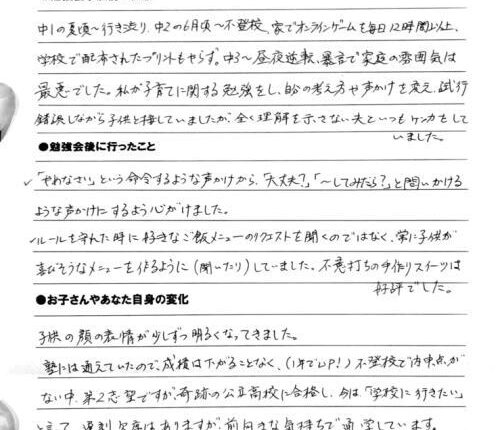 中1の夏頃〜行き渋り、中2の6月頃〜不登校、家でオンラインゲームを毎日12時間以上、
学校で配布されたプリントもやらず。中3〜昼夜逆転、暴言で家庭の雰囲気は
最悪でした。私が子育てに関する勉強をし、自分の考え方や声かけを変え、試行
錯誤しながら子供と接していましたが、全く理解を示さない夫といつもケンカをして
いました。
●勉強会後に行ったこと
✓「やめなさい」という命令するような声かけから、「大丈夫?」「〜してみたら?」と問いかける
ような声かけにするよう心がけました。
✓ルールを守れた時に好きなご飯メニューのリクエストを聞くのではなく、常に子供が
喜びそうなメニューを作るように(聞いたり)していました。不意打ちの手作りスイーツは
好評でした。
●お子さんやあなた自身の変化
子供の顔の表情が少しずつ明るくなってきました。
塾には通えていたので、成績は下がることなく、(1年でUP!)不登校で内申点が
ない中、第2志望ですが、奇跡の公立高校に合格し、今は、「学校に行きたい」
と言って、遅刻、欠席はありますが、前向きな気持ちで通学しています。